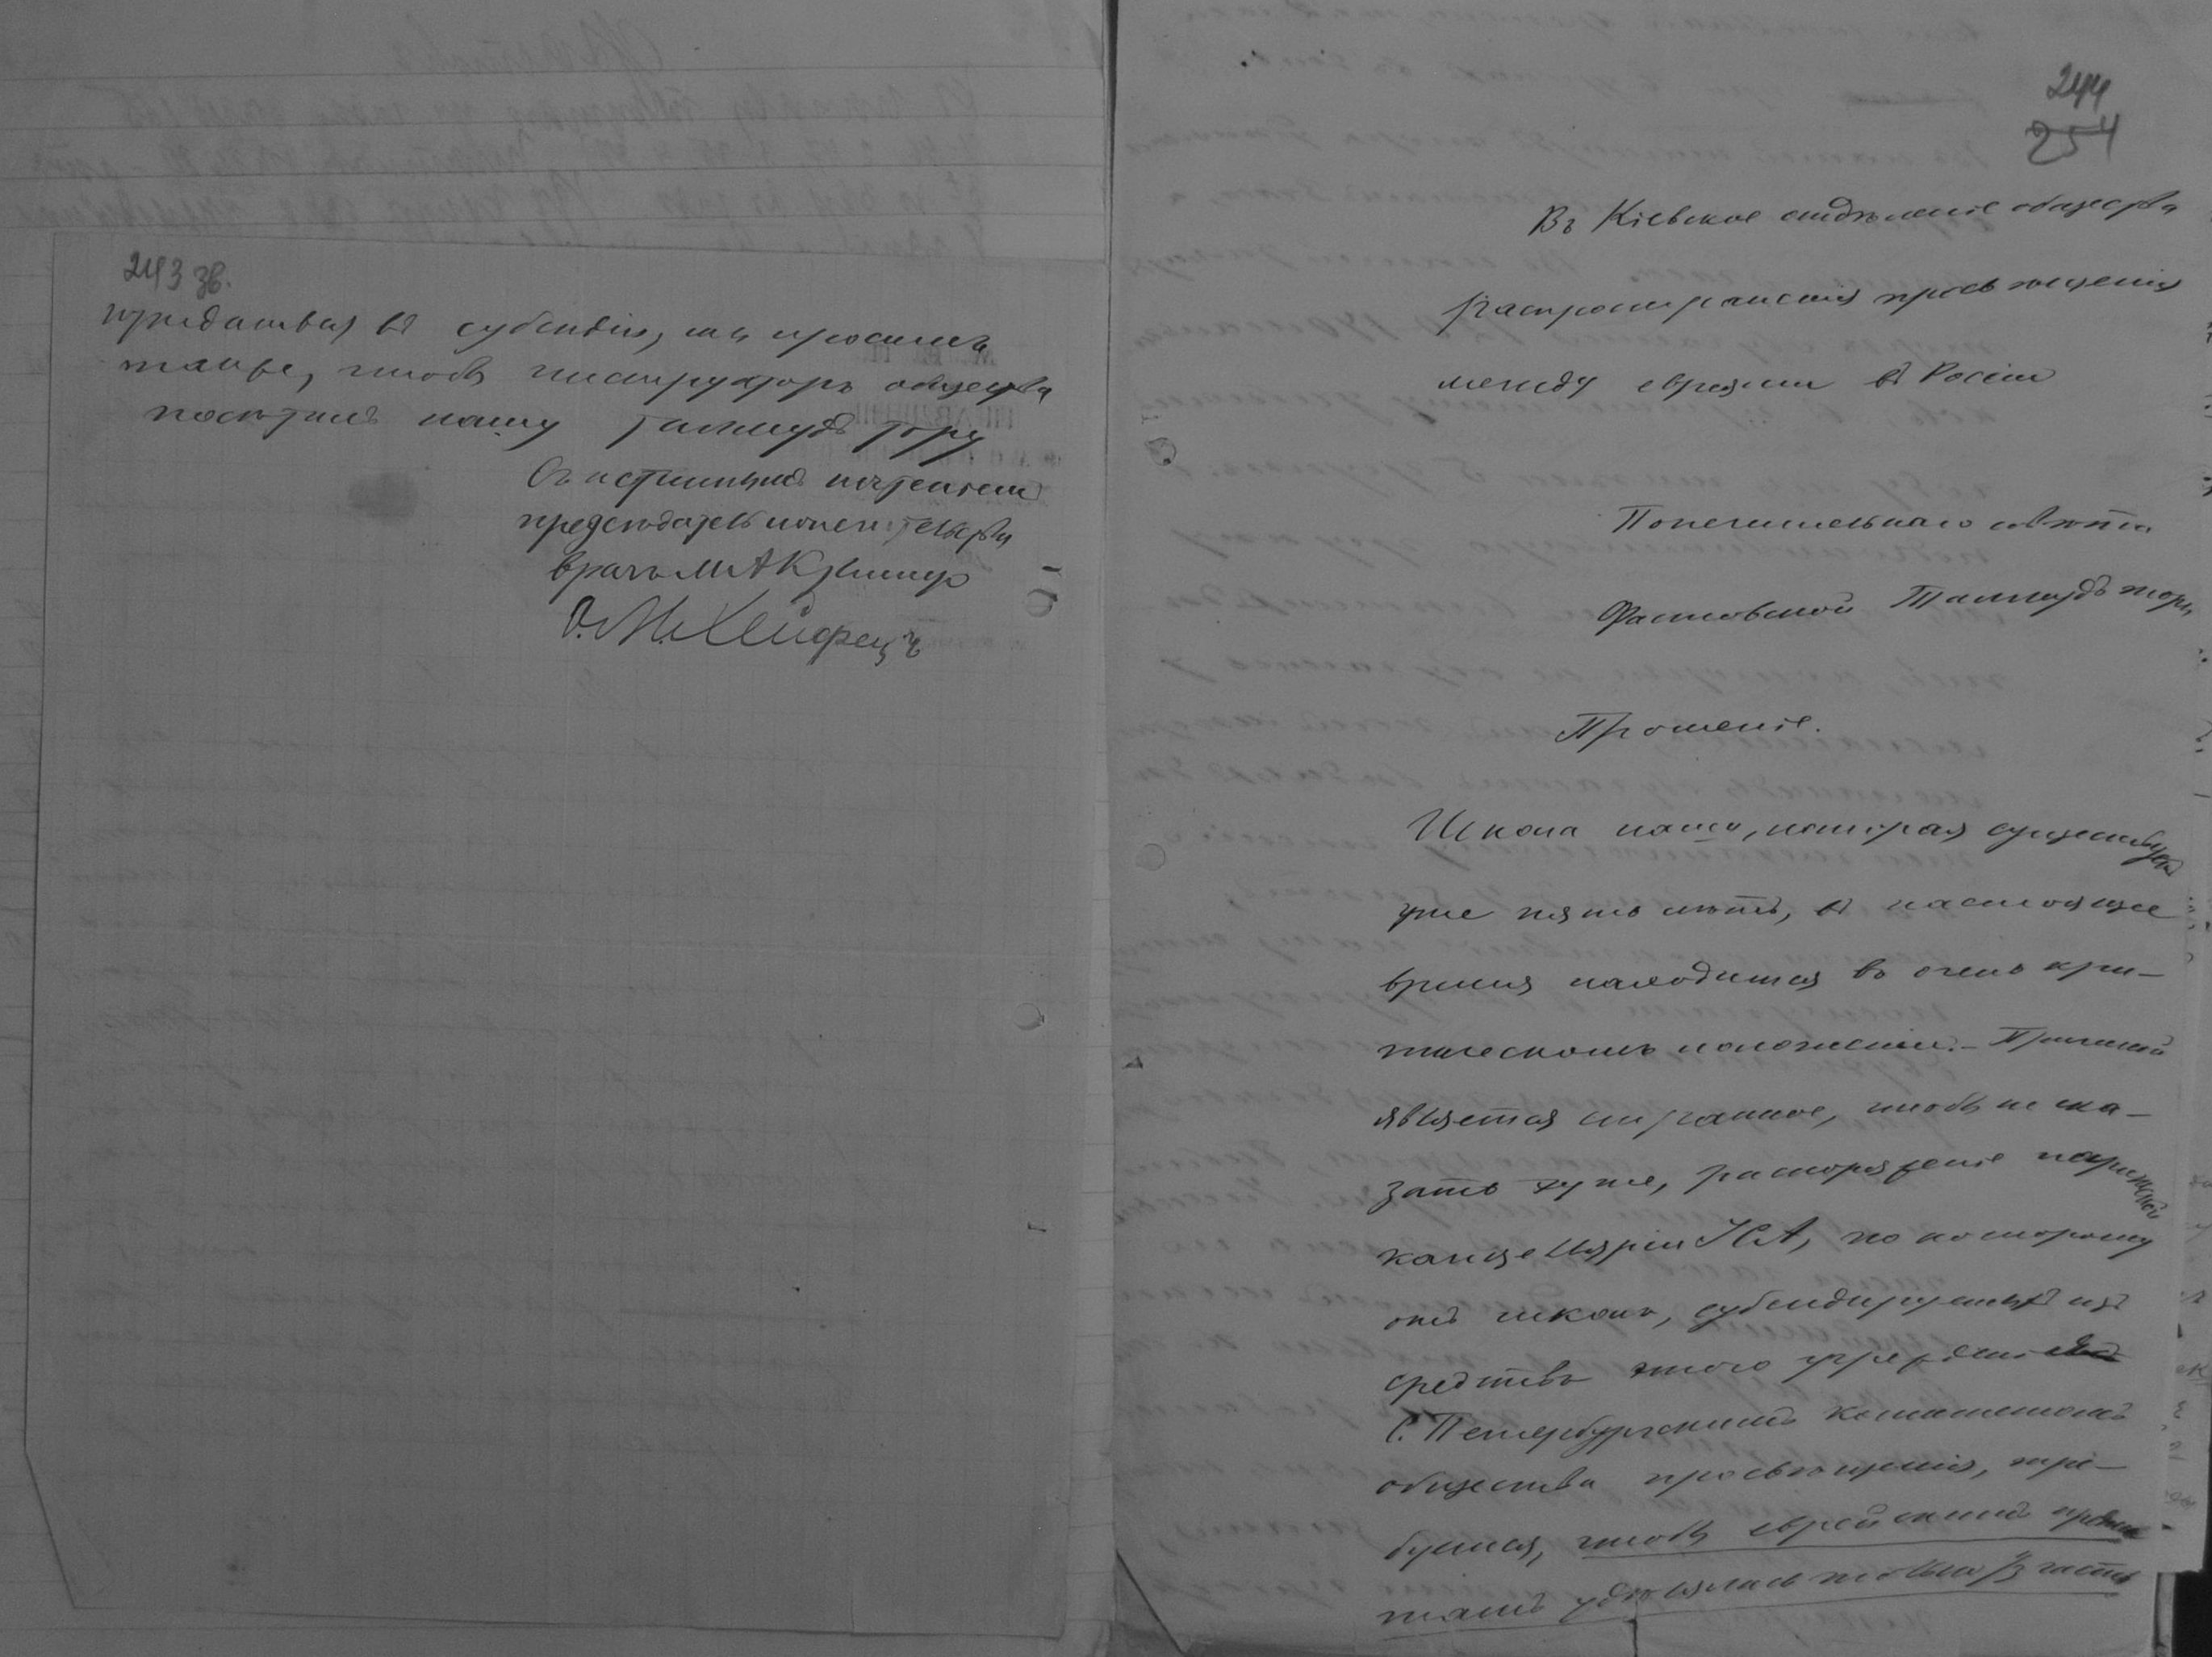 243 зв.
нуждаться въ субсидіи, мы просимъ
также, чтобы инструкторъ общества
посѣтилъ нашу Талмудъ Тору
Съ истиннымъ почтеніемъ
предсѣдатель попечительства
врачъ М А
О. М. Хейфецъ
244
254
Въ Кіевское отдѣленіе общества
Распространенія просвѣщенія
между евреями въ Россіи
Попечительнаго совѣта
Фастовской Талмудъ торы
Прошеніе.
Школа наша, которая существуетъ
уже пять лѣтъ, въ настоящее
время находится въ очень кри-
тическомъ положеніи. - Причиной
является странное, чтобы не ска-
зать хуже, распоряженіе парижской
канцеляріи ІСА, по которому
отъ школъ, субсидируемыхъ изъ
средствъ этого учрежденія
С. Петербургскимъ комитетомъ
общества просвѣщенія, тре-
буется, чтобы еврейскимъ предме-
тамъ удѣлялась только 1/3 часть